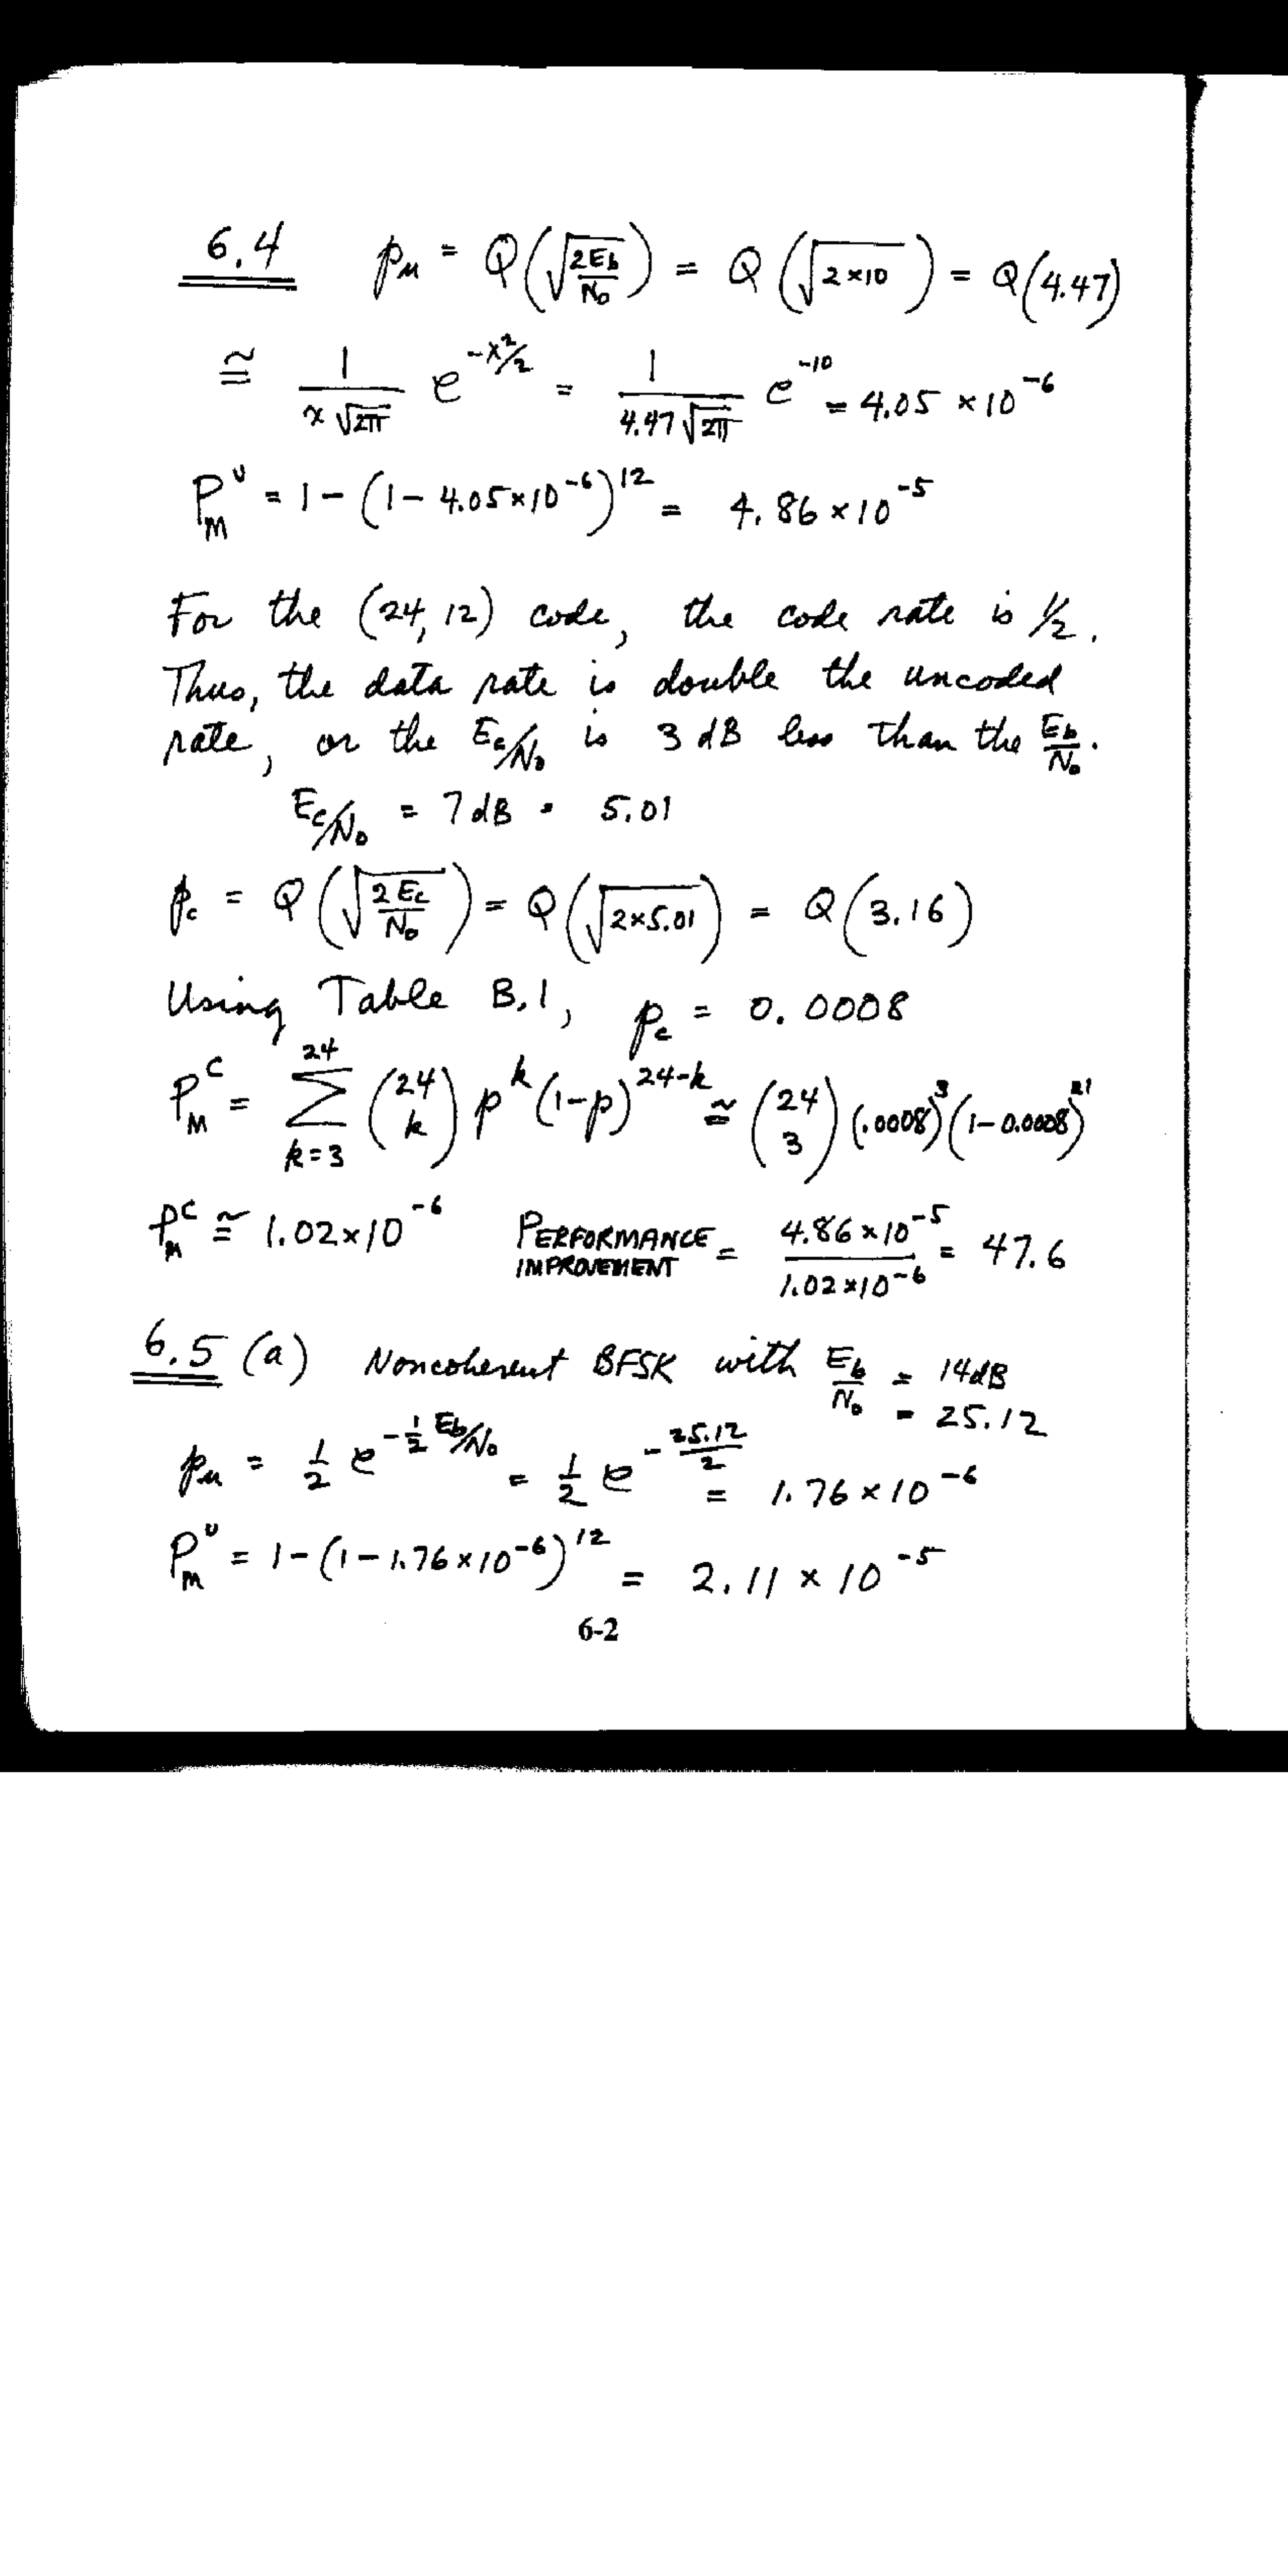 6.4 pᵤ = Q(√(2Eb/N₀)) = Q(√(2×10)) = Q(4.47)
≅ 1/(x√(2π)) e^(-x²/2) = 1/(4.47√(2π)) e^(-10) = 4.05 × 10^(-6)
P_M^U = 1 - (1 - 4.05×10^(-6))^12 = 4.86 × 10^(-5)
For the (24, 12) code, the code rate is 1/2.
Thus, the data rate is double the uncoded
rate, or the Ec/N₀ is 3 dB less than the Eb/N₀.
Ec/N₀ = 7 dB = 5.01
p_c = Q(√(2Ec/N₀)) = Q(√(2×5.01)) = Q(3.16)
Using Table B.1, p_c = 0.0008
P_M^C = Σ_{k=3}^{24} (24 k) p^k (1-p)^(24-k) ≅ (24 3) (.0008)^3 (1-0.0008)^21
P_M^C ≅ 1.02×10^(-6) PERFORMANCE IMPROVEMENT = 4.86×10^(-5) / 1.02×10^(-6) = 47.6
6.5 (a) Noncoherent BFSK with Eb/N₀ = 14dB
= 25.12
pᵤ = 1/2 e^(-1/2 Eb/N₀) = 1/2 e^(-25.12/2) = 1.76 × 10^(-6)
P_M^U = 1 - (1 - 1.76×10^(-6))^12 = 2.11 × 10^(-5)
6-2